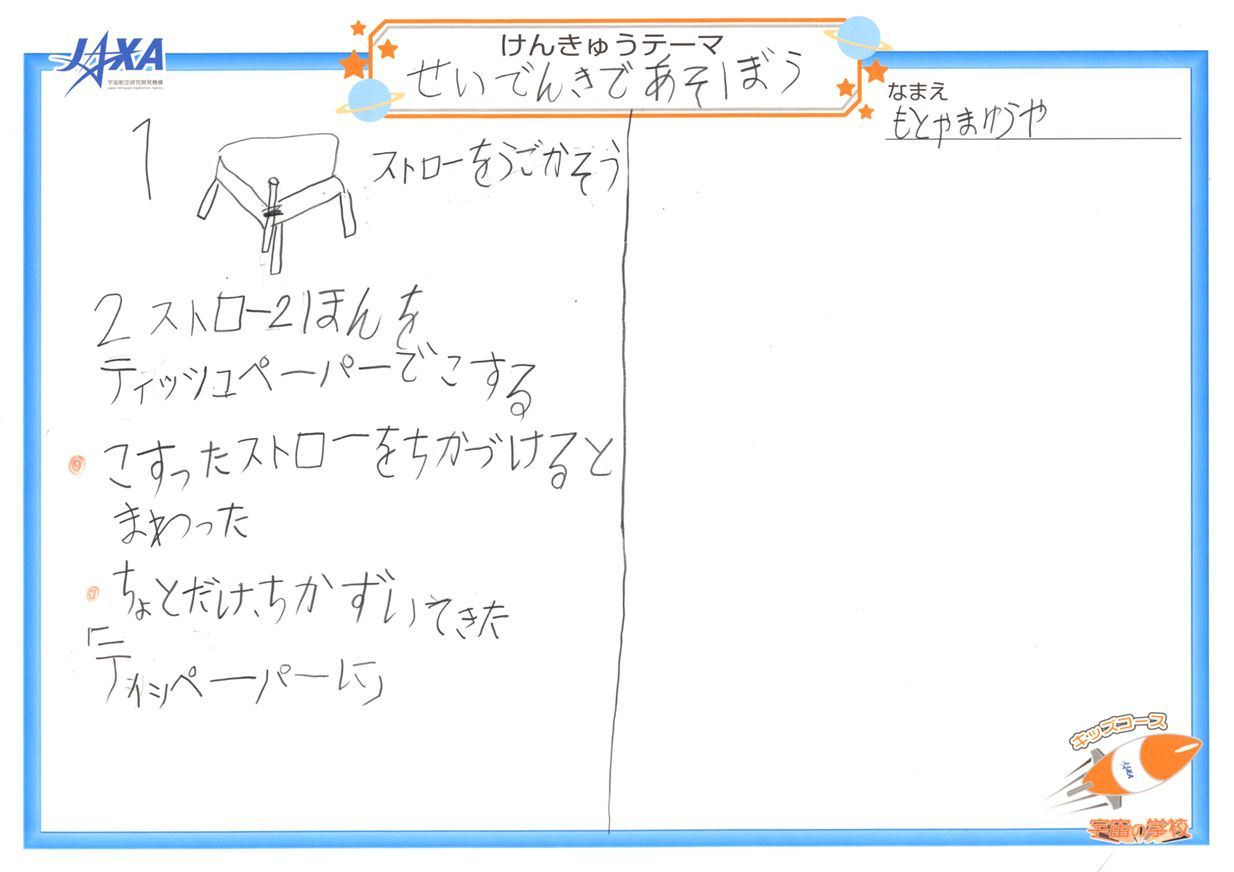 JAXA
宇宙航空研究開発機構
Japan Aerospace Exploration Agency
けんきゅうテーマ
せいでんきであそぼう
なまえ
もとやまゆうや
1
ストローをうごかそう
2 ストロー2ほんを
ティッシュペーパーでこする
こすったストローをちかづけると
まわった
ちょとだけ、ちかずいてきた
「ティシペーパーに」
キッズコース
JAXA
宇宙の学校